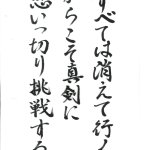 すべては消えて行く
からこそ真剣に
思いっ切り挑戦する